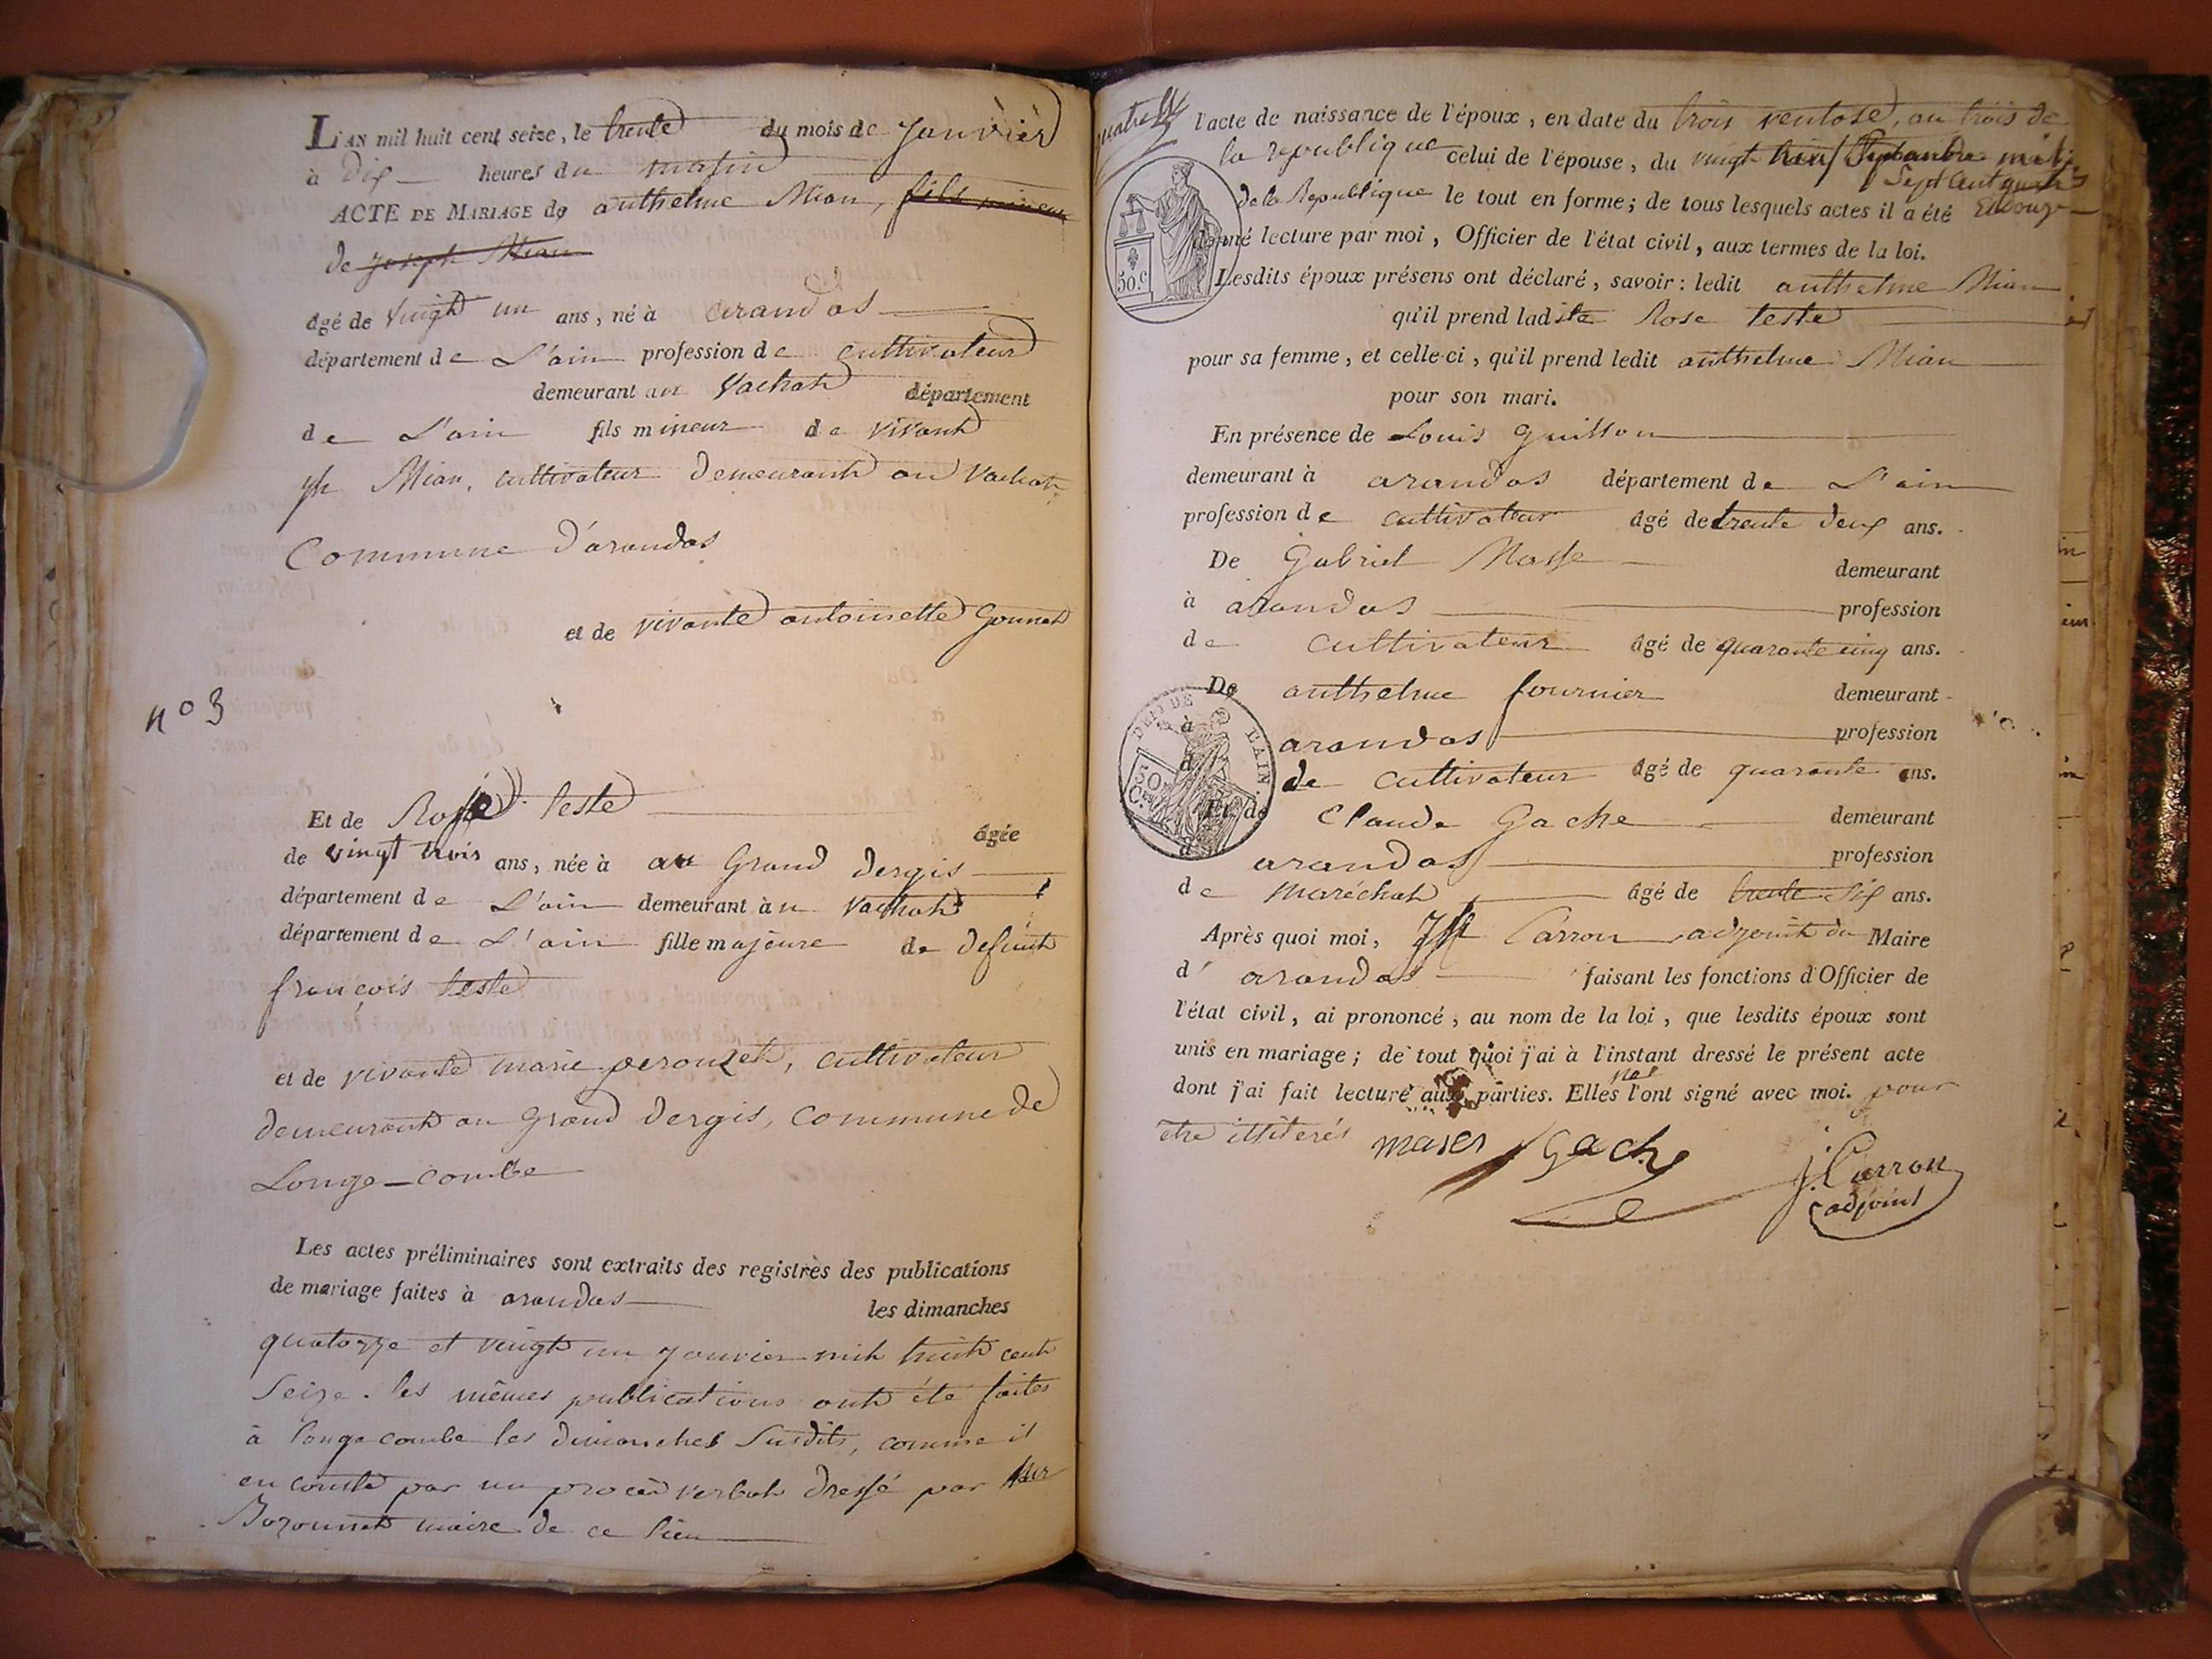 L'AN mil huit cent seize, le trente du mois de Janvier
à dix heures du matin
ACTE DE MARIAGE de anthelme Mian, fils mineur
de joseph Mian
âgé de vingt un ans, né à arandas
département de L'ain profession de cultivateur
demeurant au Vachat département
de L'ain fils mineur de vivant
jph Mian, cultivateur demeurant au Vachat
Commune d'arandas
et de vivante antoinette Gounet
n° 3
Et de Rose teste âgée
de vingt trois ans, née à au Grand dergis
département de L'ain demeurant à u Vachat
département de L'ain fille majeure de defunt
françois teste
et de vivante marie perouzet, cultivateur
demeurant au grand dergis, commune de
Longe-combe
Les actes préliminaires sont extraits des registres des publications
de mariage faites à arandas les dimanches
quatorze et vingt un janvier mil huit cent
Seize. les mêmes publications ont été faites
à longecombe les dimanches susdits, comme il
en conste par un procès verbal dressé par
Bozonnet maire de ce lieu
quatre
l'acte de naissance de l'époux, en date du trois ventose, an trois de
la republique celui de l'épouse, du vingt Septembre mil
Sept cent quatre
de la Republique le tout en forme; de tous lesquels actes il a été
donné lecture par moi, Officier de l'état civil, aux termes de la loi.
50.c
Lesdits époux présens ont déclaré, savoir: ledit anthelme Mian
qu'il prend ladite Rose teste
pour sa femme, et celle-ci, qu'il prend ledit anthelme Mian
pour son mari.
En présence de Louis Guillon
demeurant à arandas département de L'ain
profession de cultivateur âgé de trente deux ans.
De Gabriel Masse demeurant
à arandas profession
de cultivateur âgé de quarante cinq ans.
De anthelme fournier demeurant
à arandas profession
de cultivateur âgé de quarante ans.
DEPT DE L'AIN.
50 C.
Et de Claude Gache demeurant
à arandas profession
de maréchal âgé de trente six ans.
Après quoi moi, Jph Carron adjoint du Maire
d' arandas faisant les fonctions d'Officier de
l'état civil, ai prononcé, au nom de la loi, que lesdits époux sont
unis en mariage; de tout quoi j'ai à l'instant dressé le présent acte
dont j'ai fait lecture aux parties. Elles n'ont signé avec moi. pour
etre illiterés
mases Gache
j. Carron
adjoint